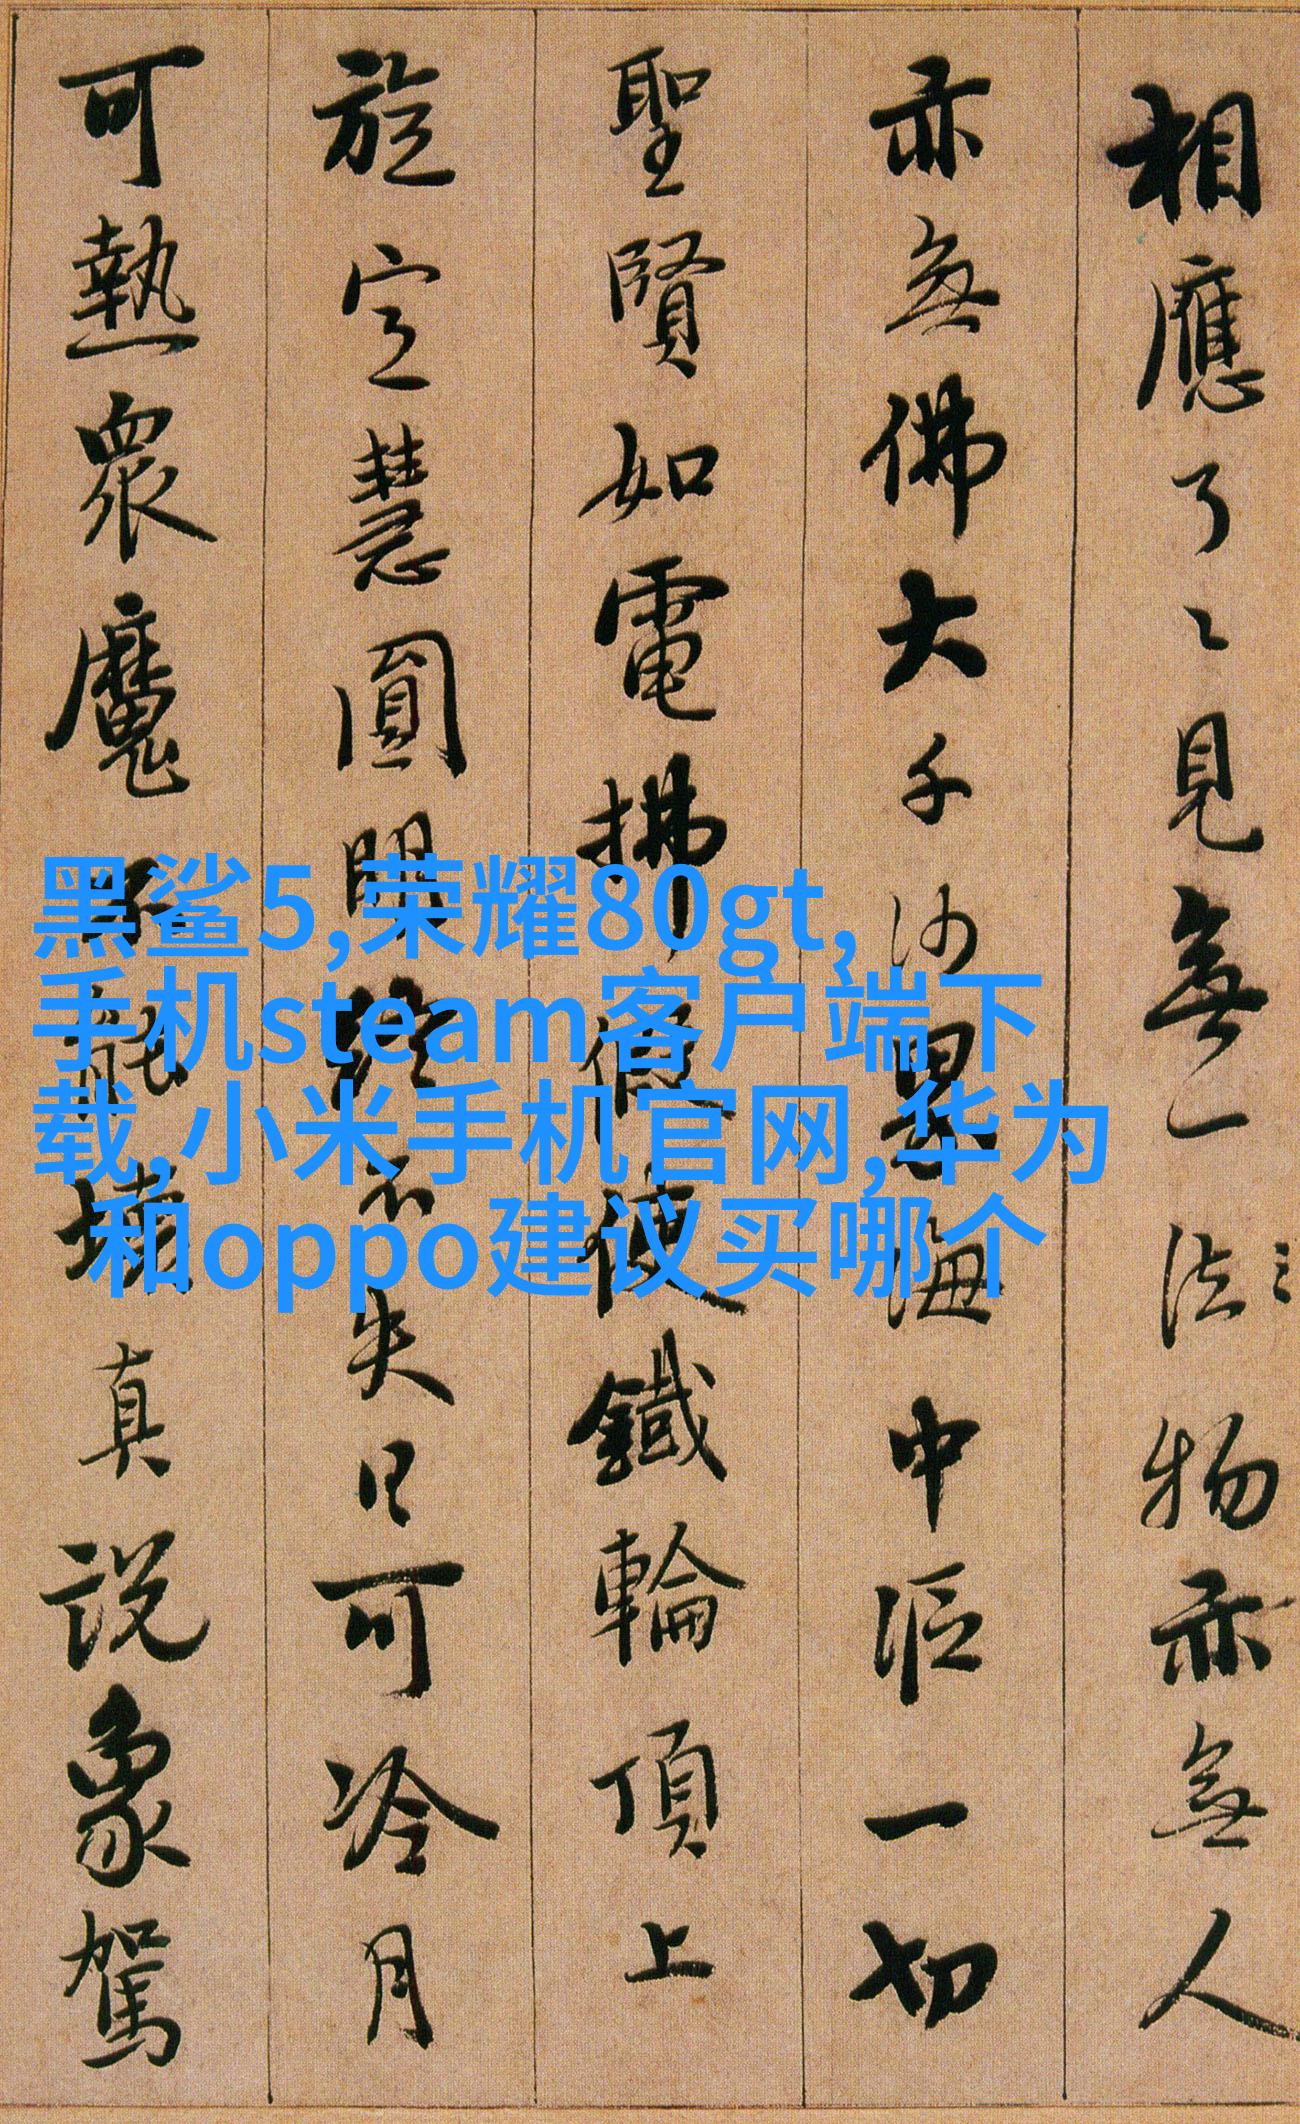 相應了〻見無一法物亦無人
亦無佛大千沙界海中漚一切
聖賢如電拂假使鐵輪頂上
旋定慧圓明終不失日可冷月
可熱衆魔不能壞真説象駕
黑鲨5,荣耀80gt,
手机steam客户端下
载,小米手机官网,华为
和oppo建议买哪个